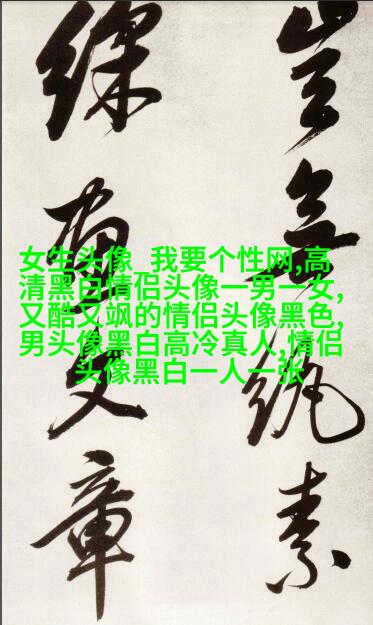 豈無紈素
綵畫文章
女生头像 我要个性网,高
清黑白情侣头像一男一女,
又酷又飒的情侣头像黑色,
男头像黑白高冷真人,情侣
头像黑白一人一张